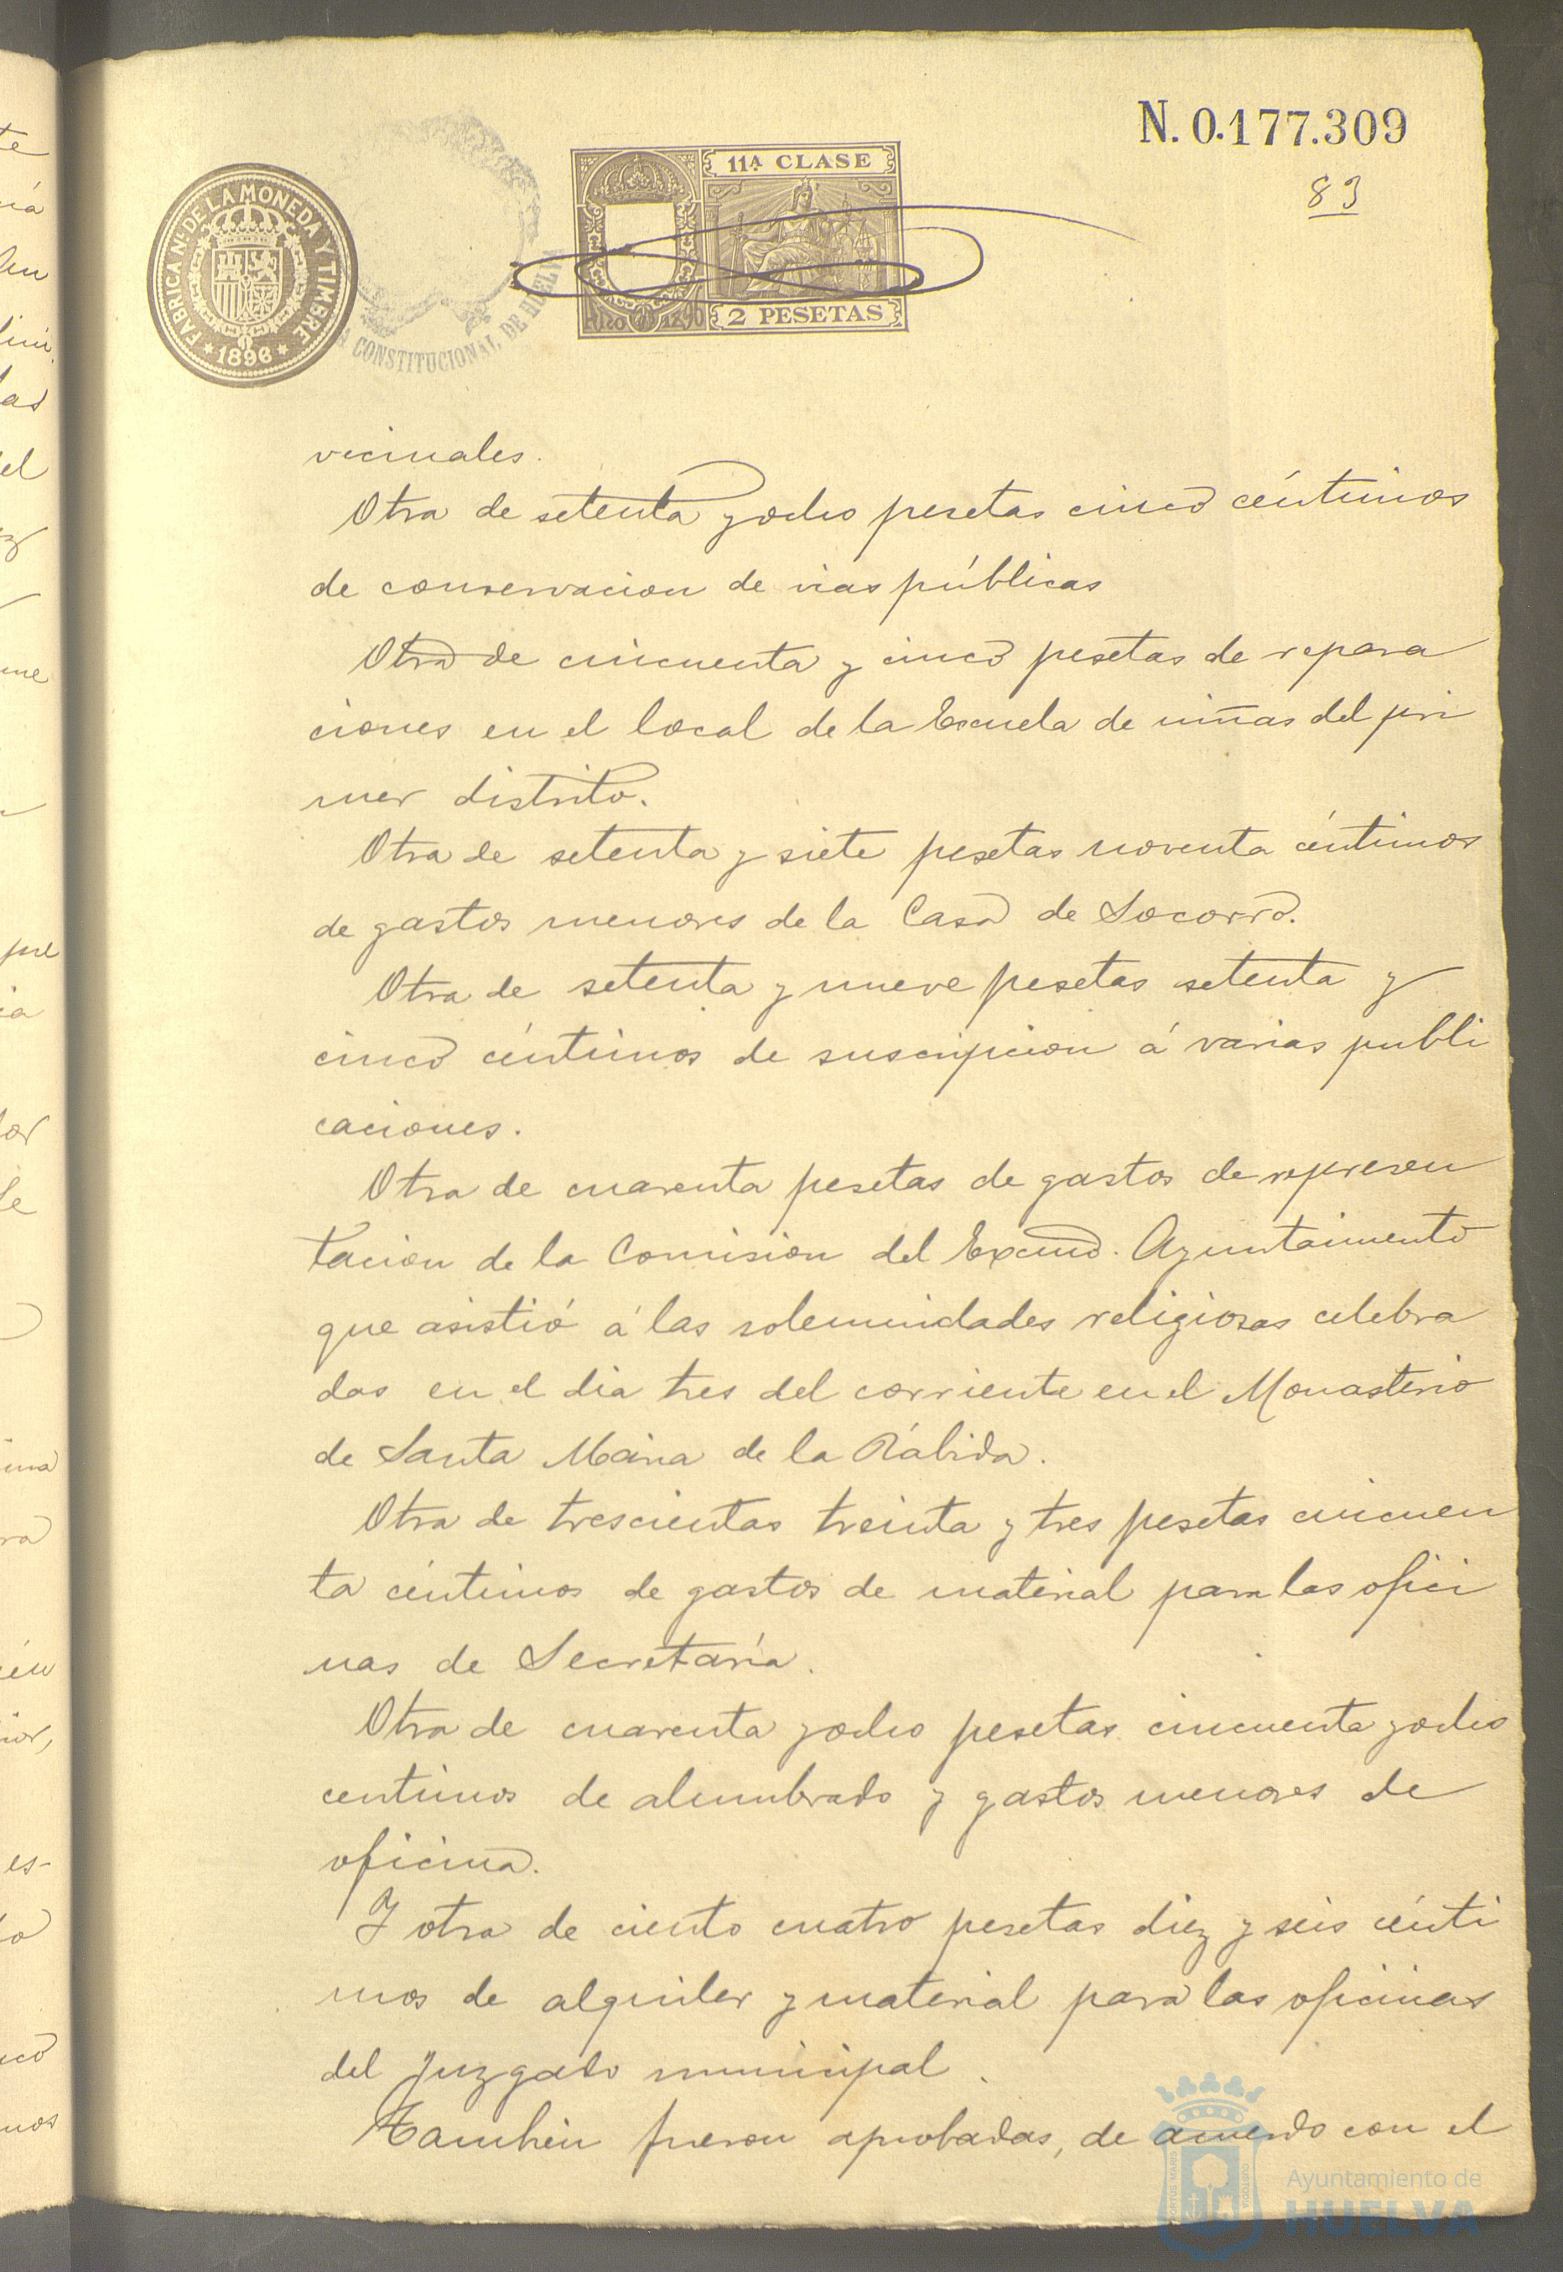 N. 0.177.309
83
11ª CLASE
2 PESETAS
FABRICA Nª DE LA MONEDA Y TIMBRE
* 1896 *
CONSTITUCIONAL DE HUELVA
vecinales.
Otra de setenta y ocho pesetas cinco céntimos
de conservacion de vias públicas
Otra de cincuenta y cinco pesetas de repara
ciones en el local de la Escuela de niñas del pri
mer distrito.
Otra de setenta y siete pesetas noventa céntimos
de gastos menores de la Casa de Socorro.
Otra de setenta y nueve pesetas setenta y
cinco céntimos de suscripcion á varias publi
caciones.
Otra de cuarenta pesetas de gastos de represen
tacion de la Comision del Excmo. Ayuntaimento
que asistió á las solemnidades religiosas celebra
das en el dia tres del corriente en el Monasterio
de Santa Maria de la Rábida.
Otra de trescientas treinta y tres pesetas cincuen
ta céntimos de gastos de material para las ofici
nas de Secretaría.
Otra de cuarenta y ocho pesetas cincuenta y ocho
centimos de alumbrado y gastos menores de
oficina.
Y otra de ciento cuatro pesetas diez y seis cénti
mos de alquiler y material para las oficinas
del Juzgado municipal.
Tambien fueron aprobadas, de acuerdo con el
Ayuntamiento de
HUELVA